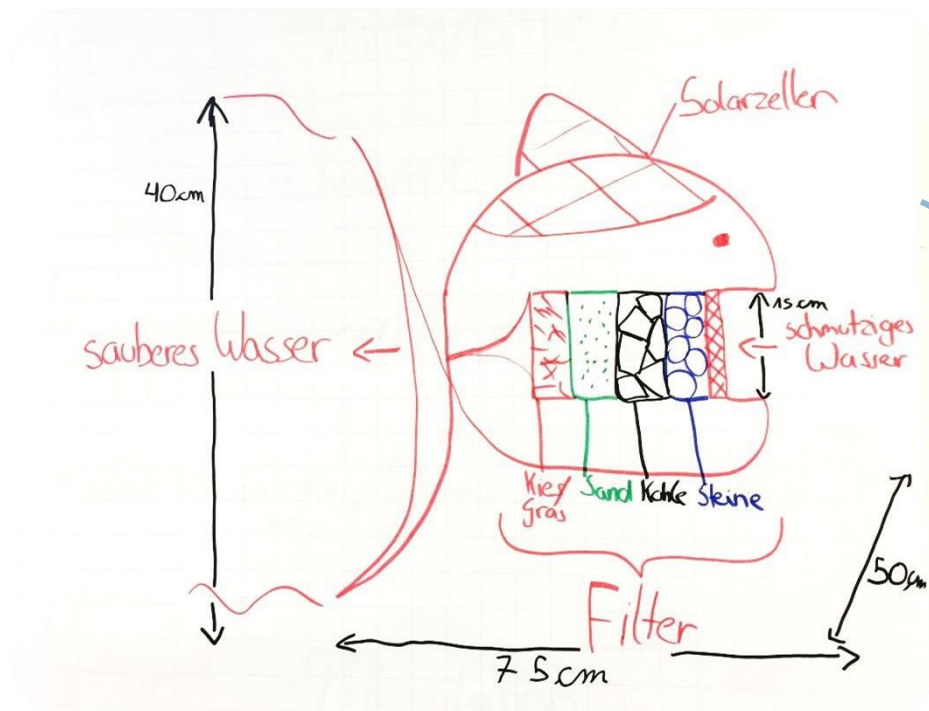 Solarzellen
40cm
15cm
sauberes Wasser
schmutziges
Wasser
Kies/
Gras
Sand
Kohle
Steine
50cm
Filter
75cm